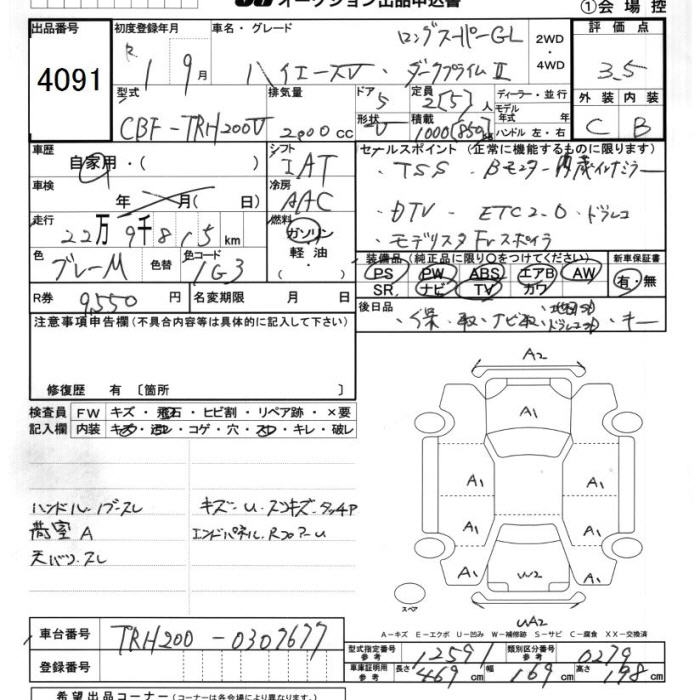 オークション出品申込書
①会場控
出品番号 初度登録年月 車名・グレード ロングスーパーGL 2WD 評価点
4091 R 1 9月 ハイエースV・ダークプライムⅡ ・4WD 3.5
型式 排気量 ドア 5 定員 2[5]人 ディーラー・並行 外装 内装
CBF-TRH200V 2000cc 形状 V 積載 1000[850]kg モデル年式 年 C B
ハンドル 左・右
車歴 シフト セールスポイント(正常に機能するものに限ります)
自家用・( ) IAT ・TSS ・Bモニター内蔵インナミラー
車検 年 月( 日) 冷房 AAC ・DTV ・ETC2.0 ・ドラレコ
走行 22万9千815km 燃料 ガソリン ・モデリスタFrスポイラ
軽油
色 ブレーM 色替 色コード 1G3 装備品(純正品に限り○をつけてください) 新車保証書
PS PW ABS エアB AW 有・無
SR ナビ TV カワ
R券 9,550円 名変期限 月 日 後日品
注意事項申告欄(不具合内容等は具体的に記入して下さい) ・保・取・ナビ取・ドラレコ取・キー
修復歴 有 [箇所 ]
検査員 FW キズ・飛石・ヒビ割・リペア跡・×要
記入欄 内装 キズ・汚レ・コゲ・穴・スレ・キレ・破レ
A2
A1
A1
A1 A1
A1 A1
A1 A1
W2
UA2
ハンドル・ノブ・スレ キズ・U・スンキズ・タッチP
荷室A エンドパネル、Rフロアー U
天バリ、スレ
スペア
A-キズ E-エクボ U-凹み W-補修跡 S-サビ C-腐食 XX-交換済
車台番号 TRH200-0307677
型式指定番号 参考 12591 類別区分番号 参考 0279
登録番号
車庫証明用 参考 長さ 469cm 幅 169cm 高さ 198cm
希望出品コーナー(コーナーは各会場により異なります)